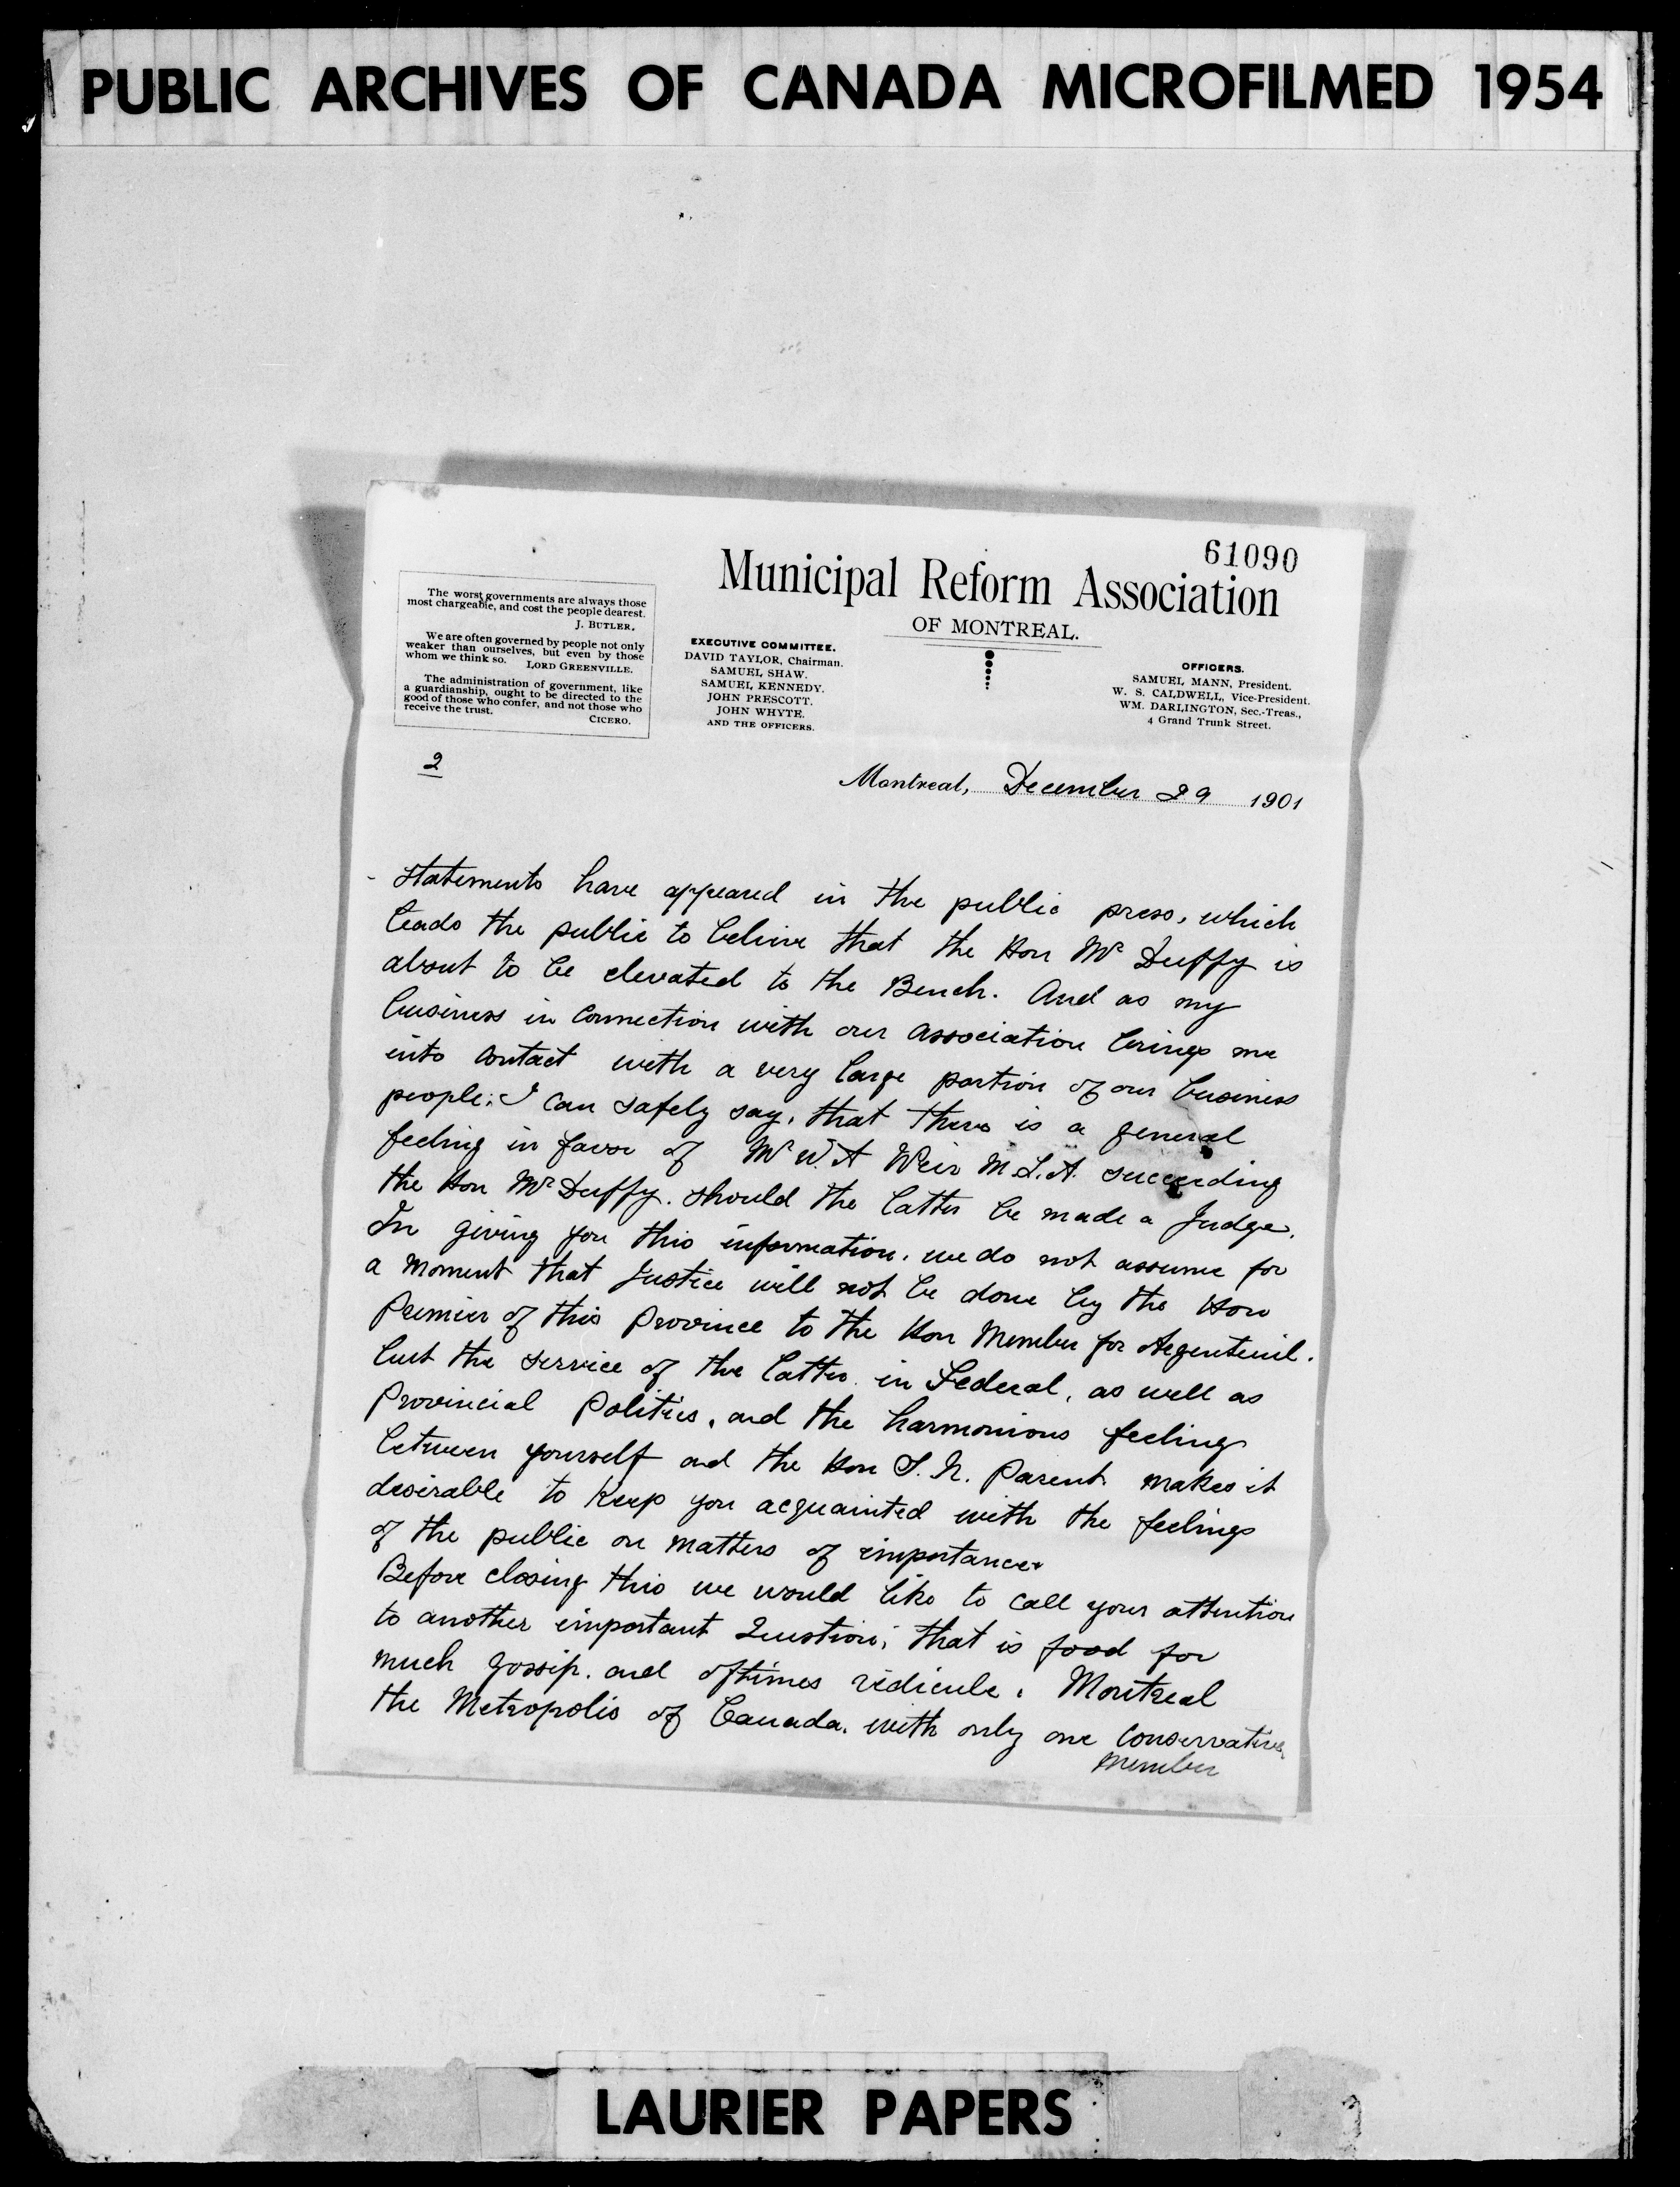 PUBLIC ARCHIVES OF CANADA MICROFILMED 1954
61090
Municipal Reform Association
OF MONTREAL.
The worst governments are always those
most chargeable, and cost the people dearest.
J. BUTLER.
We are often governed by people not only
weaker than ourselves, but even by those
whom we think so. LORD GREENVILLE.
The administration of government, like
a guardianship, ought to be directed to the
good of those who confer, and not those who
receive the trust.
CICERO.
EXECUTIVE COMMITTEE.
DAVID TAYLOR, Chairman.
SAMUEL SHAW.
SAMUEL KENNEDY.
JOHN PRESCOTT.
JOHN WHYTE.
AND THE OFFICERS.
OFFICERS.
SAMUEL MANN, President.
W. S. CALDWELL, Vice-President.
WM. DARLINGTON, Sec.-Treas.,
4 Grand Trunk Street.
2
Montreal, December 29 1901
- Statements have appeared in the public press, which
leads the public to belive that the Hon Mr Duffy is
about to be elevated to the Bench. And as my
business in connection with our association brings me
into contact with a very large portion of our business
people; I can safely say, that there is a general
feeling in favor of Mr W. A Weir M.L.A. succeeding
the Hon Mr Duffy. should the latter be made a Judge.
In giving you this information, we do not assume for
a moment that Justice will not be done by the Hon
Premier of this Province to the Hon Member for Argenteuil.
but the service of the latter in Federal, as well as
Provincial Politics, and the harmonious feelings
between yourself and the Hon S. N. Parent makes it
desirable to keep you acquainted with the feelings
of the public on matters of importance.
Before closing this we would like to call your attention
to another important Question; that is food for
much gossip. and oftimes ridicule. Montreal
the Metropolis of Canada. with only one Conservative
Member
LAURIER PAPERS